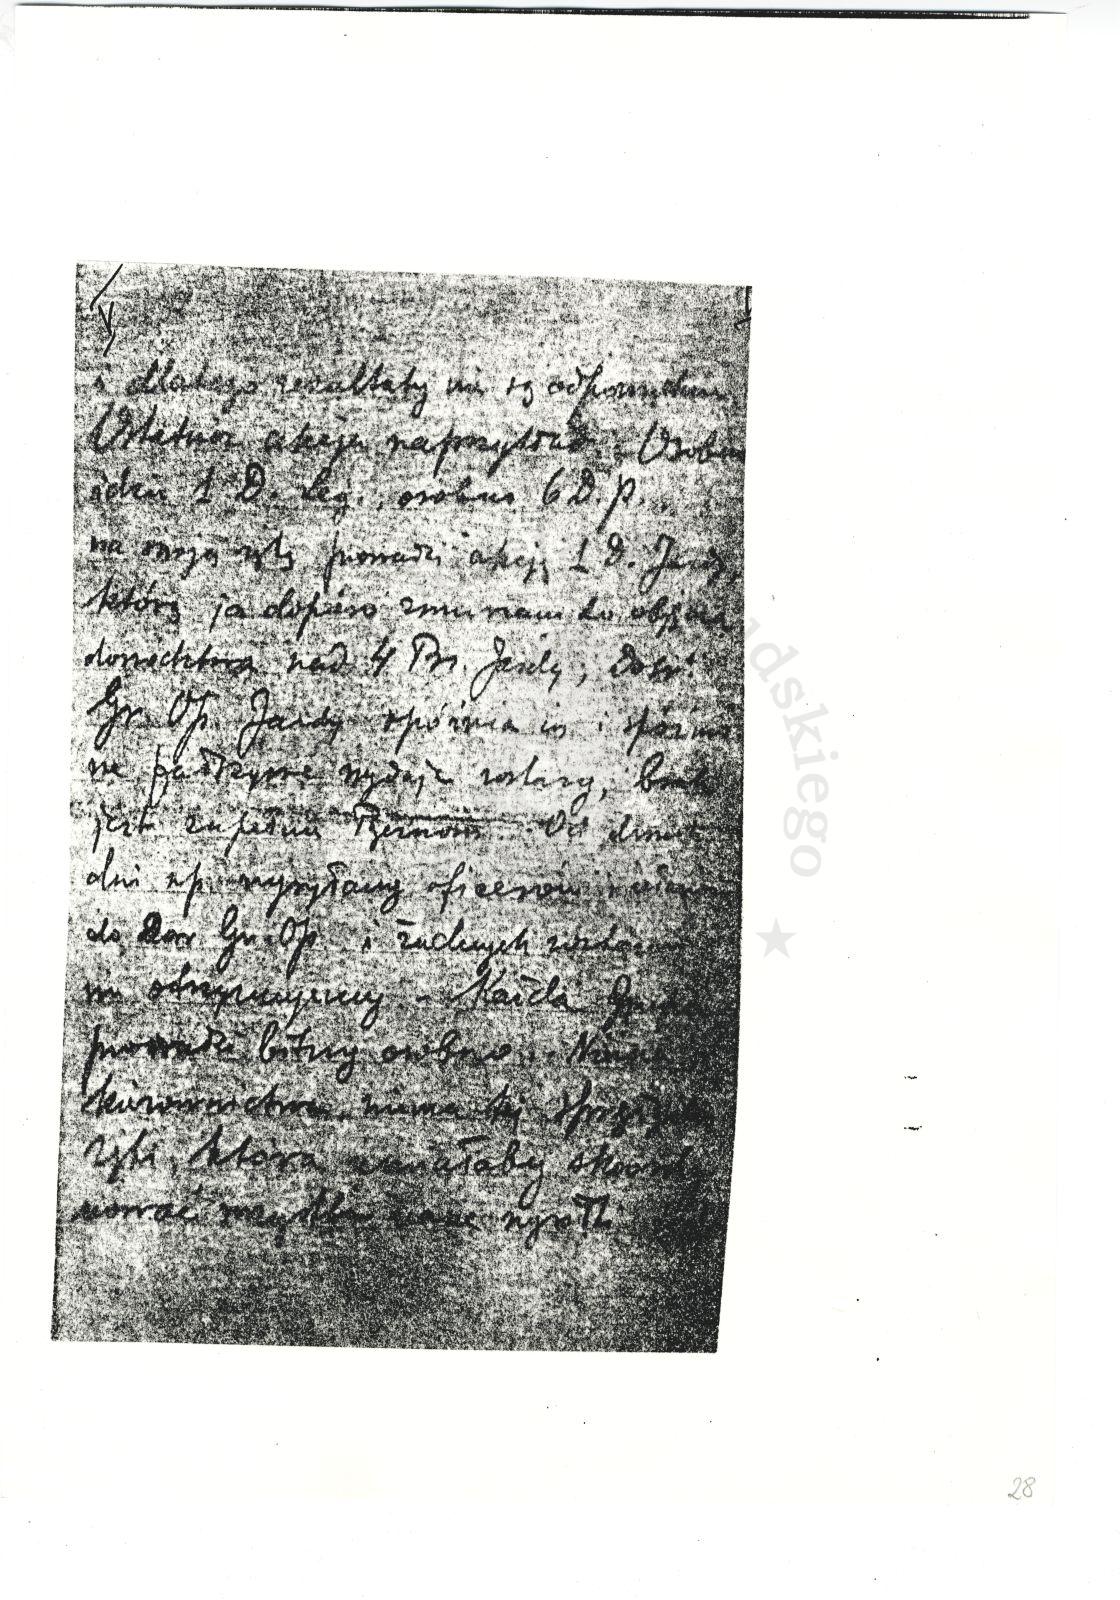 V
i dlatego rezultaty nie są odpowiednie
Ostatnia akcja naprzykład. Osobno
idzie 1 D. Leg., osobno 6 D. p.,
na swoją rękę prowadzi akcję 1 D. Jazdy,
którą ja dopiero zmuszam do objęcia
dowództwa nad 4 Br. Jazdy, Do-wo
Gr. Op. Jazdy spóźnia się i spóźnio
ne wydaje rozkazy, brak
jest zupełnie. Od dwuch
dni np. wysyłamy oficerów
do Dow. Gr. Op. i żadnych rozkazów
nie otrzymujemy - Każda Gr.
prowadzi bitwy osobno. Niema
kierownictwa, niema tej sprężystej
ręki, która umiałaby skoordy
nować wszystkie nasze wysiłki
dskiego
28